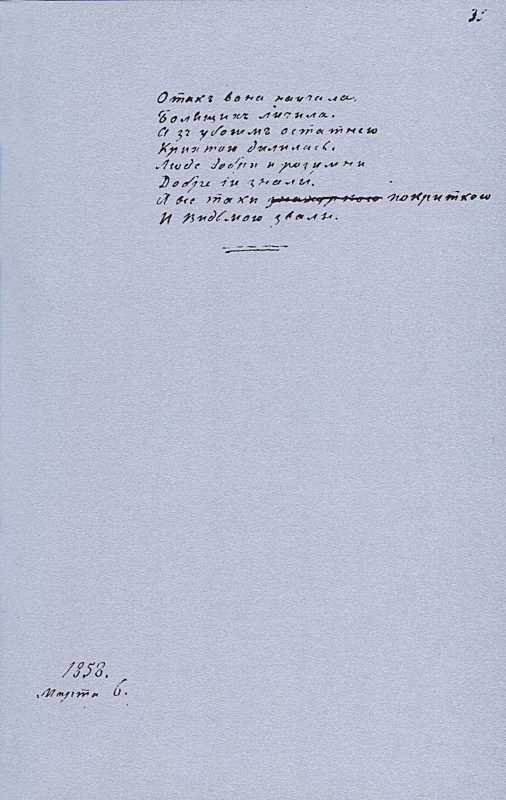 3
Отакъ вона научала.
Болящихъ личила.
А зъ убогимъ остатнею
Крихтою дилилась.
Люде добри и розумни
Добре іи знали.
А все таки покриткою
И Видьмою звали.
1858.
Марта 6.